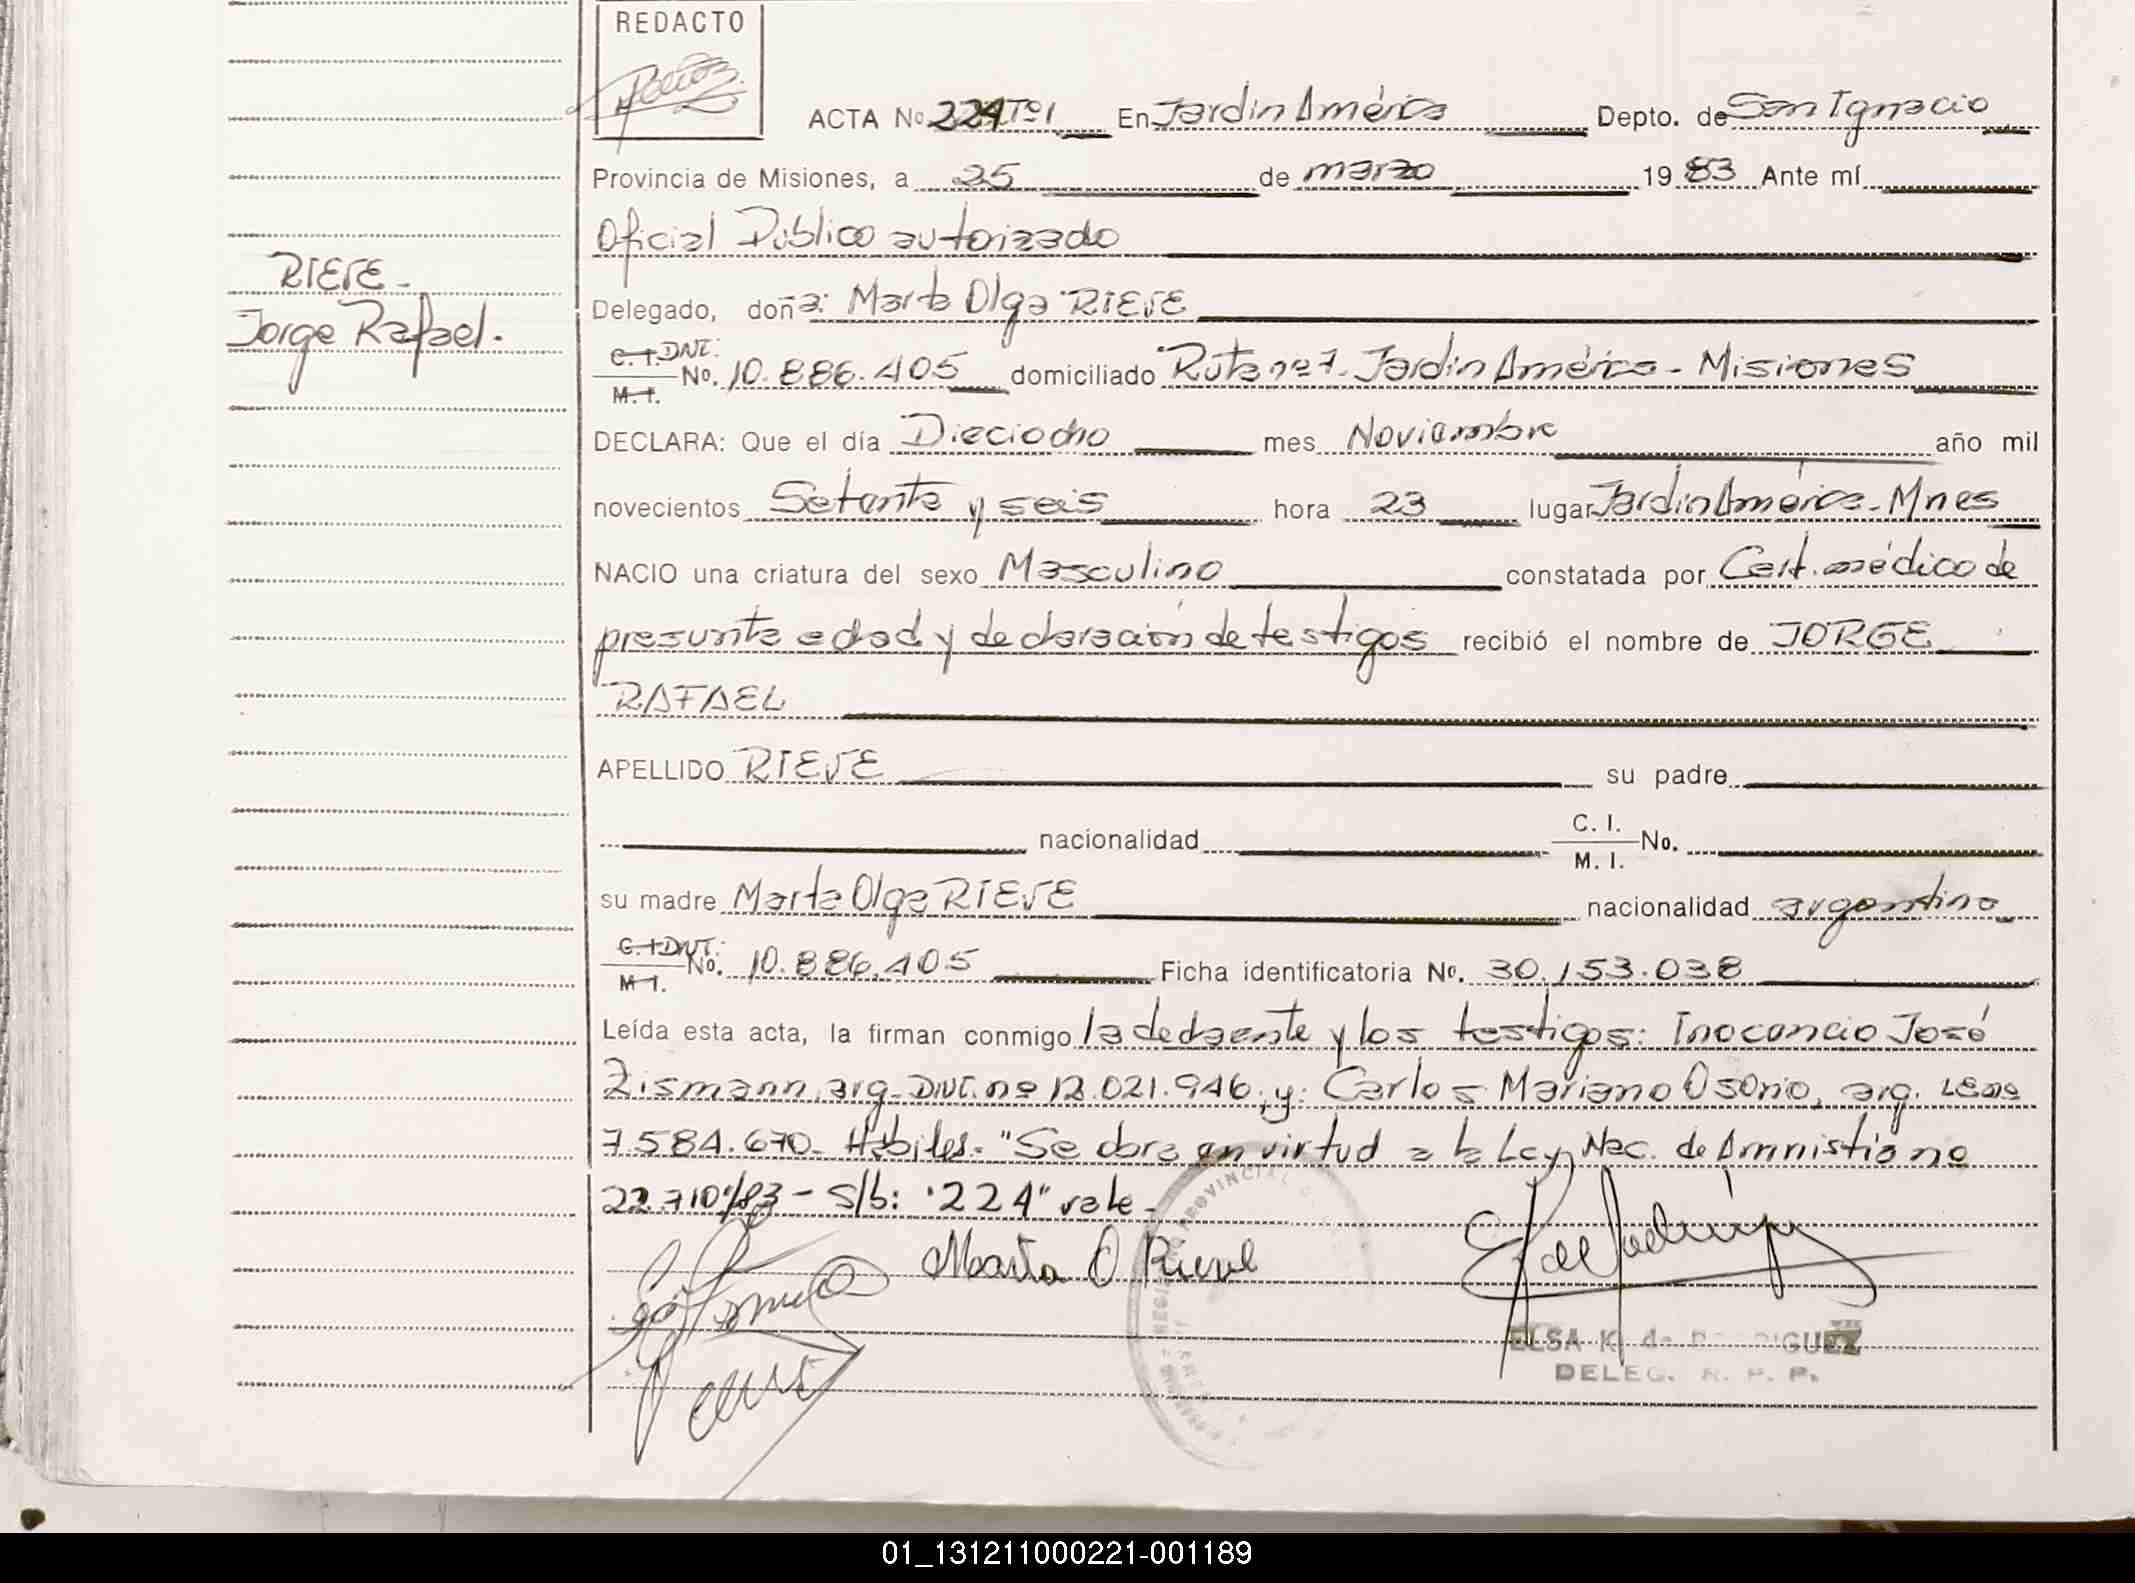 REDACTO
ACTA No 224 Tº 1 En Jardín América Depto. de San Ignacio
Provincia de Misiones, a 25 de marzo 19 83 Ante mí
Oficial Público autorizado
RIEVE -
Jorge Rafael.
Delegado, doña: Marta Olga RIEVE
C. I. DNI. M. I. No. 10.886.405 domiciliado Ruta nº 7. Jardín América - Misiones
DECLARA: Que el día Dieciocho mes Noviembre año mil
novecientos Setenta y seis hora 23 lugar Jardín América - Mnes
NACIO una criatura del sexo Masculino constatada por Cert. médico de
presunta edad y declaración de testigos recibió el nombre de JORGE
RAFAEL
APELLIDO RIEVE su padre
nacionalidad C. I. M. I. No.
su madre Marta Olga RIEVE nacionalidad argentina
C. I. DNI. M. I. No. 10.886.405 Ficha identificatoria No. 30.153.038
Leída esta acta, la firman conmigo la declarante y los testigos: Inocencio José
Zismann, arg. DNI. nº 12.021.946, y: Carlos Mariano Osorio, arg.
7.584.670. Hábiles. "Se obra en virtud a la Ley Nac. de Amnistía nº
22.710/83 - S/b: "224" vale -
Marta O Rieve
ELSA K. de RODRIGUEZ
DELEG. R. P. P.
01_131211000221-001189